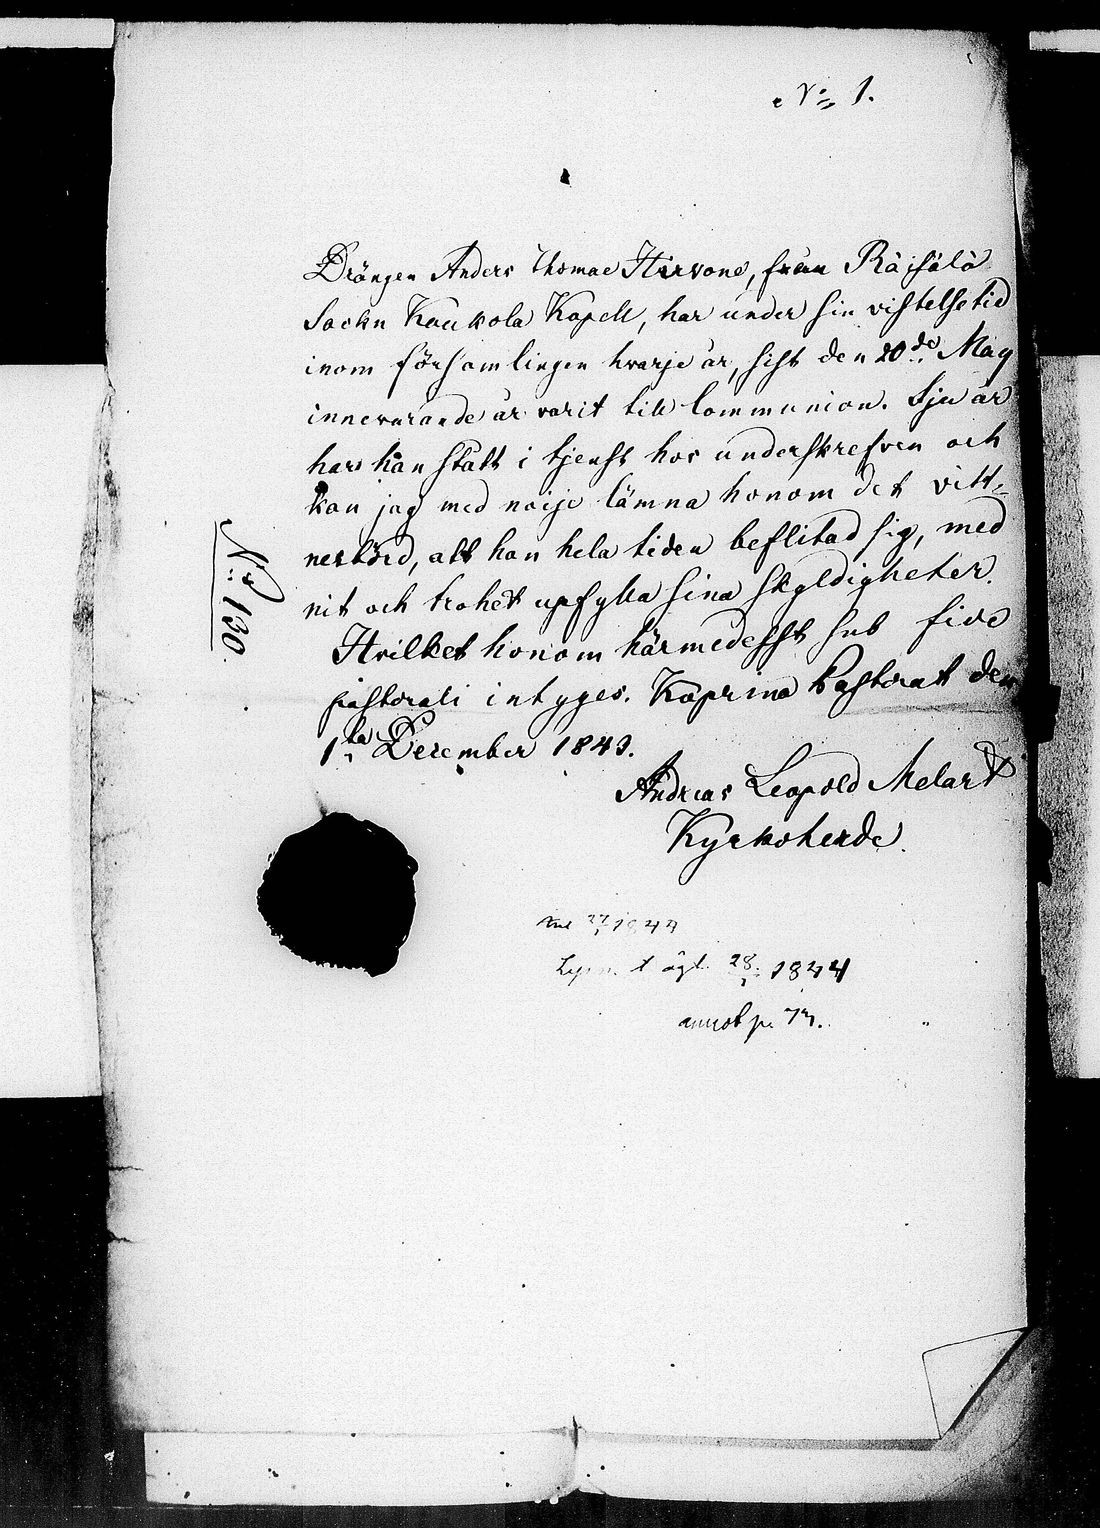 N:= 1.
Drängen Anders Thomae Hirvone, från Räisälä
Sockn Kaukola Kapell, har under sin vistelsetid
inom församlingen hvarje år, sist den 20de Maij
innevarande år varit till Communion. Sju år
har han stått i tjenst hos underskrefven och
kan jag med nöije lämna honom det vitt-
nesbörd, att han hela tiden beflitad sig, med
nit och trohet upfylla sina skyldigheter.
Hvilket honom härmedelst sub fide
pastorali intyges. Kaprina Pastorat den
1sta December 1843.
Andreas Leopold Melart
Kyrkoherde.
N:o 130.
27/1 1844
ägt. 28/1 1844
annot p.